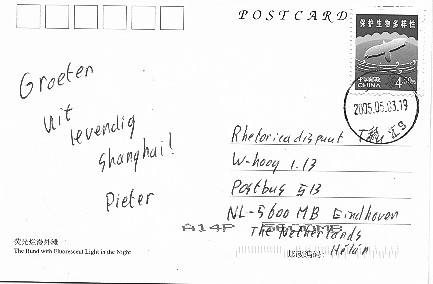 POSTCARD
保护生物多样性
中国邮政
CHINA
2005.05.03.19
Groeten
uit
levendig
Shanghai!
Pieter
Rhetoricadispuut
W-hoog 1.13
Postbus 513
NL-5600 MB Eindhoven
The Netherlands
荧光灿烂外滩
The Bund with Fluorescent Light in the Night
邮政编码: